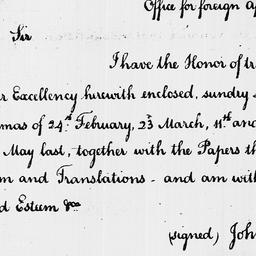 Office for foreign
Sir
I have the Honor of
Excellency herewith enclosed, sundry
of 24th February, 23 March, 11th and
May last, together with the Papers
and Translations - and am with
Esteem &ca
(signed) John